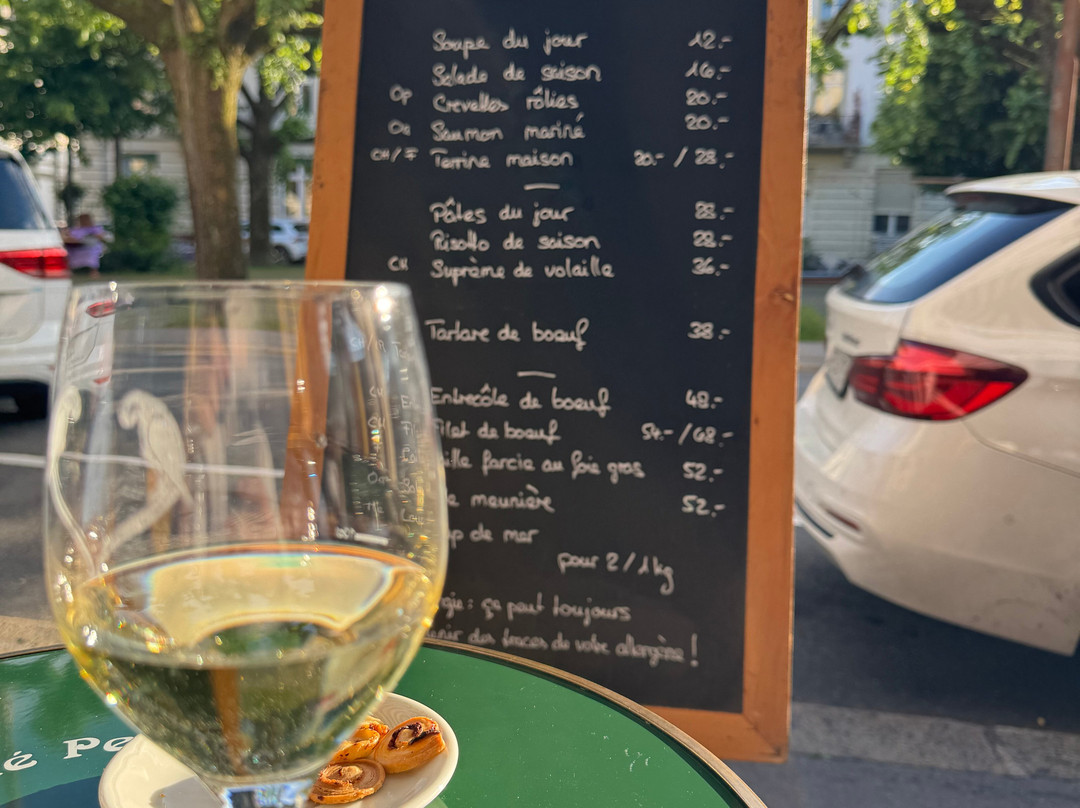 Soupe du jour 12.-
Salade de saison 16.-
Op Crevettes rôties 20.-
Saumon mariné 20.-
CH/F Terrine maison 20.- / 28.-
Pâtes du jour 28.-
Risotto de saison 28.-
CH Suprême de volaille 36.-
Tartare de boeuf 38.-
Entrecôte de boeuf 48.-
filet de boeuf 54.- / 68.-
ille farcie au foie gras 52.-
meunière 52.-
p de mer
pour 2 / 1kg
gie : ça peut toujours
nir des traces de votre allergène !
é Pe